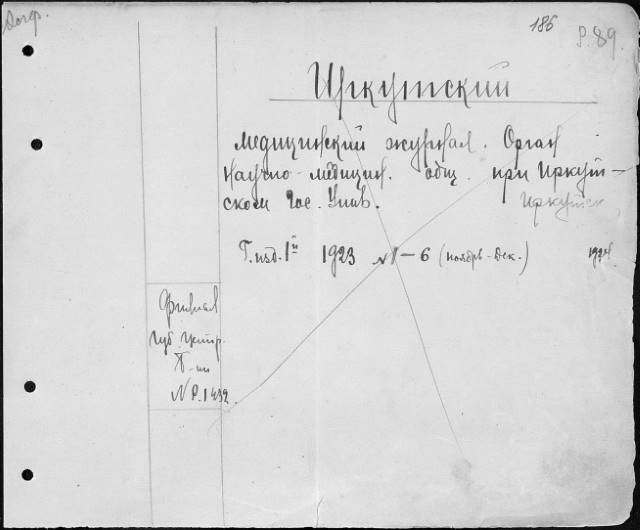 186
P.89
Иркутский
медицинский журнал. Орган
Научно-медицин. общ. при Иркут-
ском Гос. Унив. Иркутск
Г. изд. 1й 1923 N1-6 (ноябрь-дек.) 1924
Филиал
Губ.
N P.1492.